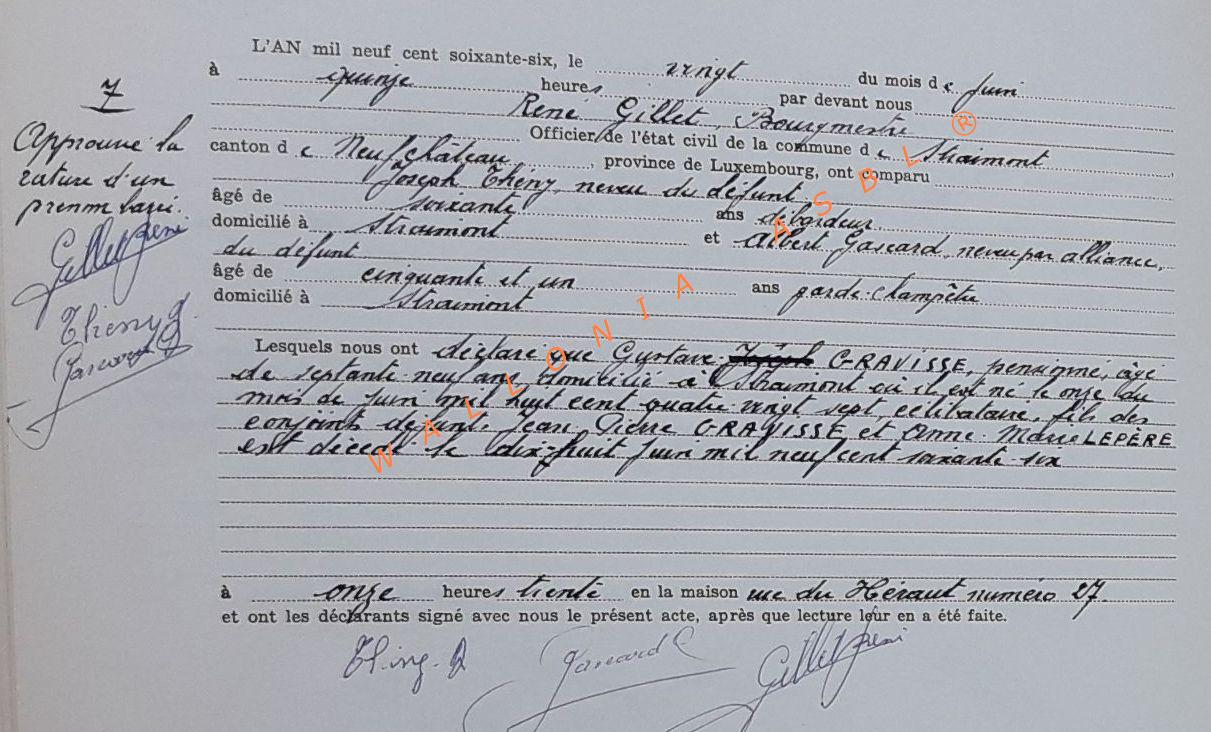 7
Approuvé la
rature d'un
prénom barré.
Gillet René
Thiry J
Gascard
L'AN mil neuf cent soixante-six, le vingt du mois de Juin
à quinze heures par devant nous
René Gillet, Bourgmestre
Officier de l'état civil de la commune de Straimont
canton de Neufchâteau, province de Luxembourg, ont comparu
Joseph Thiry, neveu du défunt
âgé de soixante ans débardeur
domicilié à Straimont et Albert Gascard, neveu par alliance,
du défunt
âgé de cinquante et un ans garde-champêtre
domicilié à Straimont
Lesquels nous ont déclaré que Gustave Joseph GRAVISSE, pensionné, âgé
de septante-neuf ans, domicilié à Straimont où il est né le onze du
mois de Juin mil huit cent quatre vingt sept, célibataire, fils des
conjoints défunts Jean Pierre GRAVISSE et Anne-Marie LEPÈRE
est décédé le dix-huit Juin mil neuf cent soixante-six
à onze heures trente en la maison rue du Héraut numéro 27.
et ont les déclarants signé avec nous le présent acte, après que lecture leur en a été faite.
Thiry. J Gascard Gillet René
WALLONIA ASBL ®